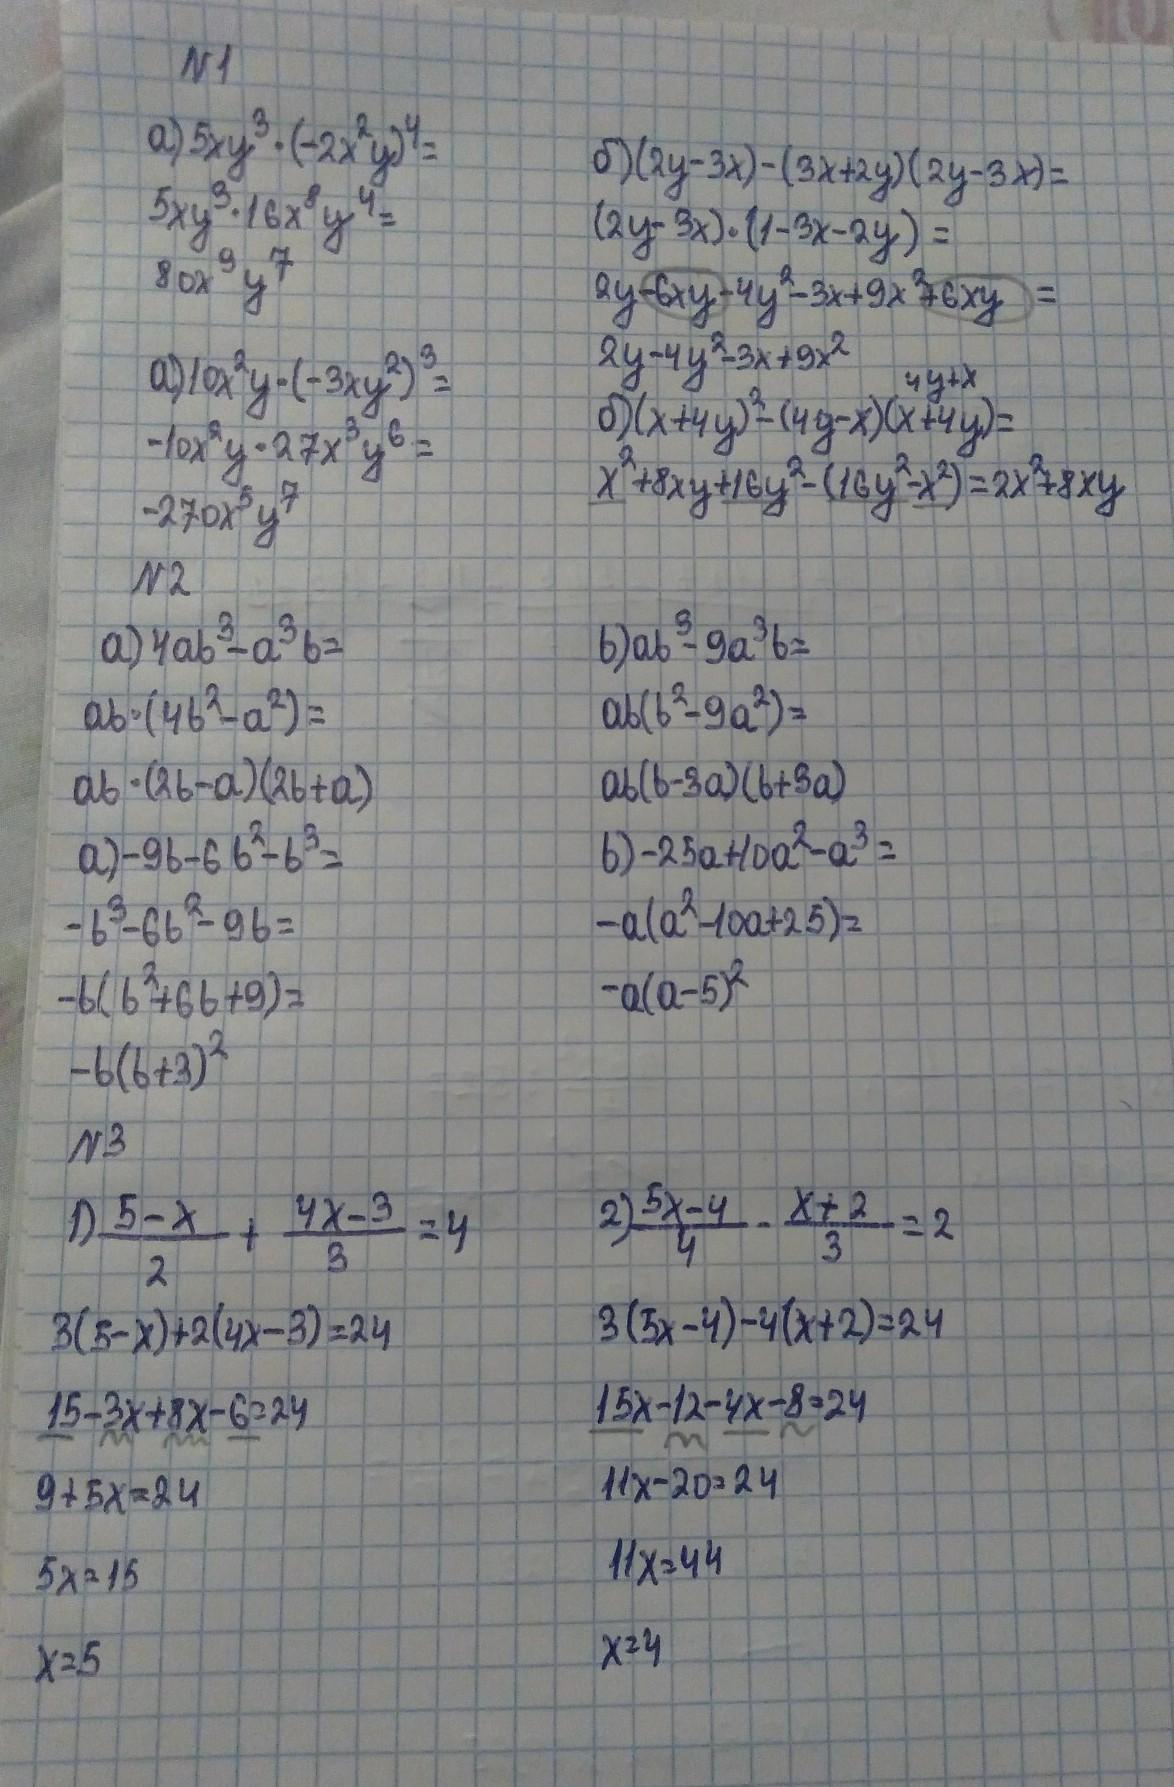 N1
а) 5xy³·(-2x²y)⁴=
5xy³·16x⁸y⁴=
80x⁹y⁷
а) 10x²y·(-3xy²)³=
-10x²y·27x³y⁶=
-270x⁵y⁷
б) (2y-3x)-(3x+2y)(2y-3x)=
(2y-3x)·(1-3x-2y)=
2y-6xy-4y²-3x+9x²+6xy=
2y-4y²-3x+9x²
4y+x
б) (x+4y)²-(4y-x)(x+4y)=
x²+8xy+16y²-(16y²-x²)=2x²+8xy
N2
а) 4ab³-a³b=
ab·(4b²-a²)=
ab·(2b-a)(2b+a)
а) -9b-6b²-b³=
-b³-6b²-9b=
-b(b²+6b+9)=
-b(b+3)²
b) ab³-9a³b=
ab(b²-9a²)=
ab(b-3a)(b+3a)
b) -25a+10a²-a³=
-a(a²-10a+25)=
-a(a-5)²
N3
1) (5-x)/2 + (4x-3)/3 =4
3(5-x)+2(4x-3)=24
15-3x+8x-6=24
9+5x=24
5x=15
x=5
2) (5x-4)/4 - (x+2)/3 =2
3(5x-4)-4(x+2)=24
15x-12-4x-8=24
11x-20=24
11x=44
x=4